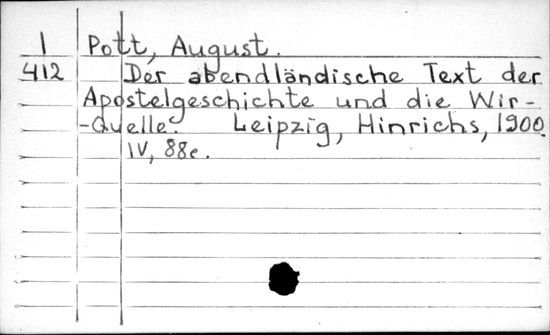 I Pott, August.
412 Der abendländische Text der
Apostelgeschichte und die Wir-
-Quelle. Leipzig, Hinrichs, 1900.
IV, 88c.